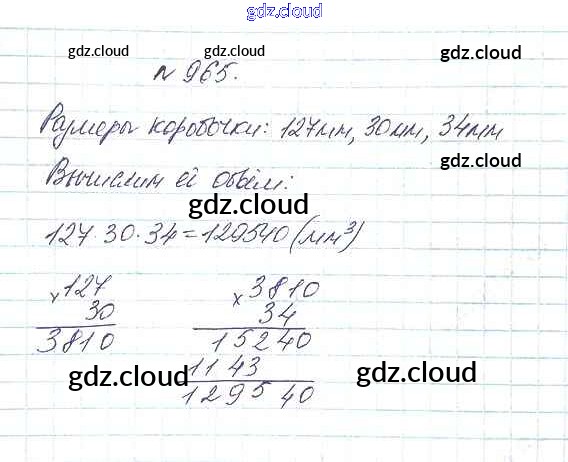 gdz.cloud
gdz.cloud gdz.cloud gdz.cloud
№ 965.
Размеры коробочки: 127мм, 30мм, 34мм
gdz.cloud
Вычислим её объём:
gdz.cloud
127·30·34=129540(мм³)
gdz.cloud
× 127 × 3810
30 34
3810 15240
1143
gdz.cloud gdz.cloud
129540